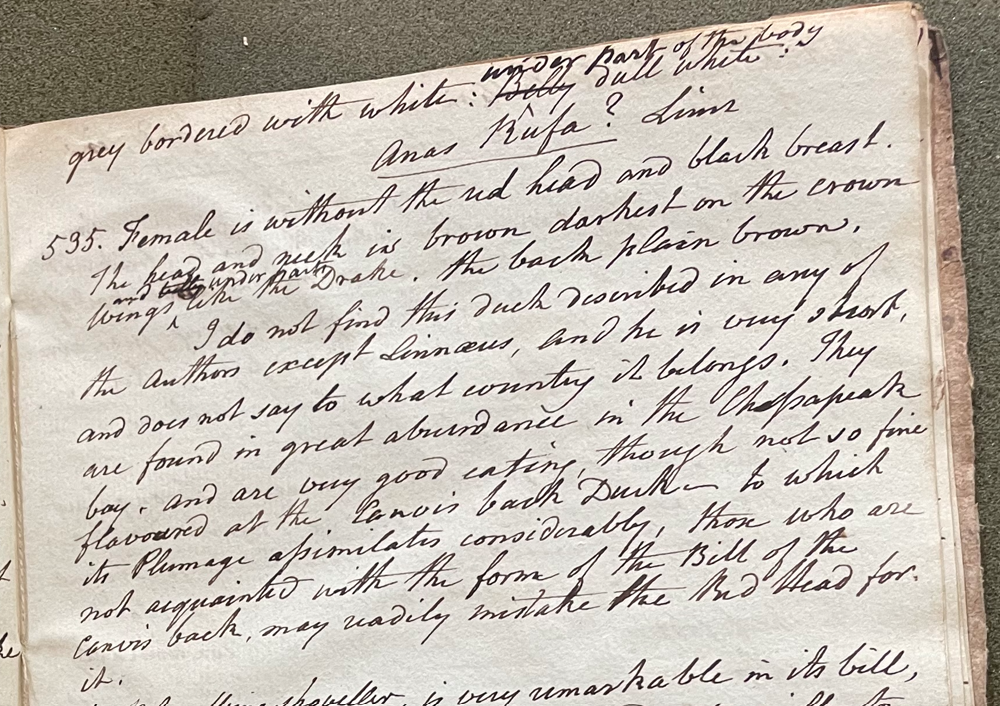 under part of the body
grey bordered with white: Belly dull white:
Anas Rufa? Linn
535. Female is without the red head and black breast.
The head and neck is brown darkest on the crown
and belly under parts
Wings like the Drake. the back plain brown.
I do not find this duck described in any of
the Authors except Linnæus, and he is very short,
and does not say to what country it belongs. They
are found in great abundance in the Chesapeak
bay, and are very good eating, though not so fine
flavoured at the Canvis back Duck — to which
its Plumage assimilates considerably, those who are
not acquainted with the form of the Bill of the
Canvis back, may readily mistake the Red Head for
it.
shoveller, is very remarkable in its bill,